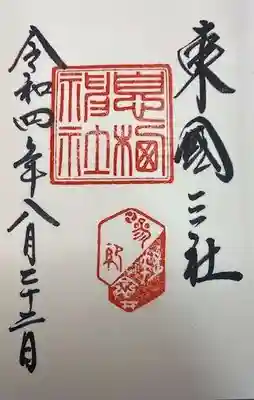 東國三社
息栖
神社
参拝
令和四年八月二十二日